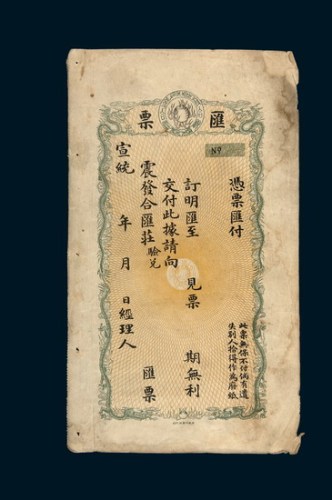 匯票
Nº
憑票匯付
此票無保不付倘有遺
失別人拾得作為廢紙
訂明匯至 見票 期無利
交付此據請向
震發合匯莊驗兌 匯票
宣統 年 月 日經理人